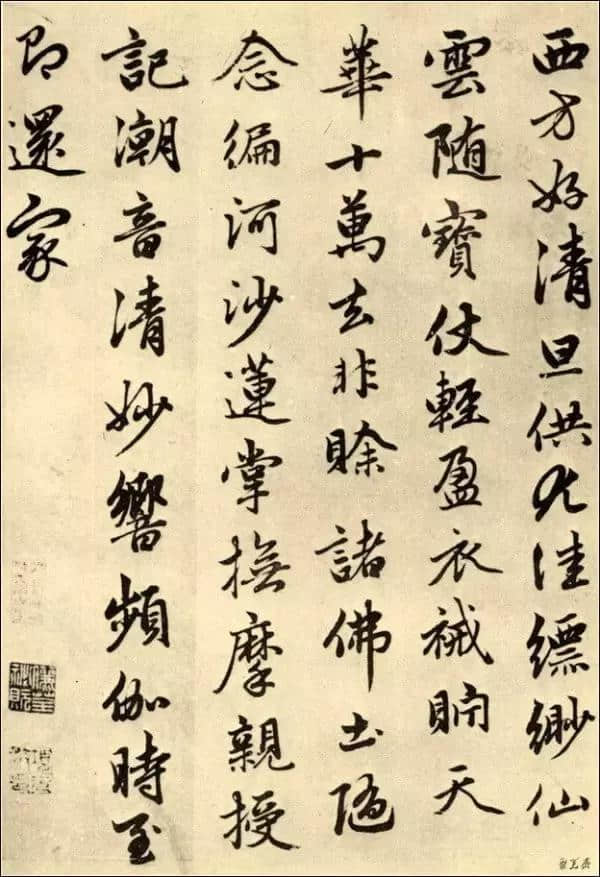 西方好清旦供尤佳縹緲仙
雲随寶仗輕盈衣祴貯天
華十萬去非賒諸佛土随
念徧河沙蓮掌撫摩親授
記潮音清妙響頻伽時至
即還家